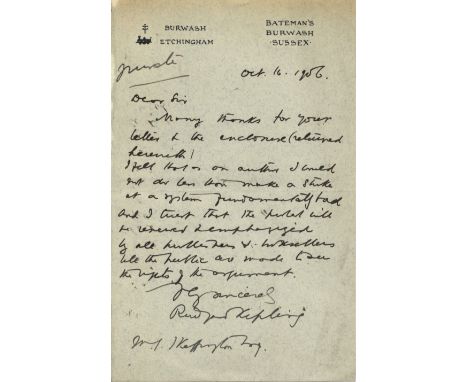 BURWASH
ETCHINGHAM
BATEMAN'S
BURWASH
·SUSSEX·
private
Oct. 16. 1906.
Dear Sir
Many thanks for your
letter & the enclosure (returned
herewith)
I felt that as an author I could
not do less than make a strike
at a system fundamentally bad
and I trust that the protest will
be renewed & emphasized
by all publishers & booksellers
till the public are made to see
the rights of the argument.
sincerely
Rudyard Kipling
Skeffington Esq.